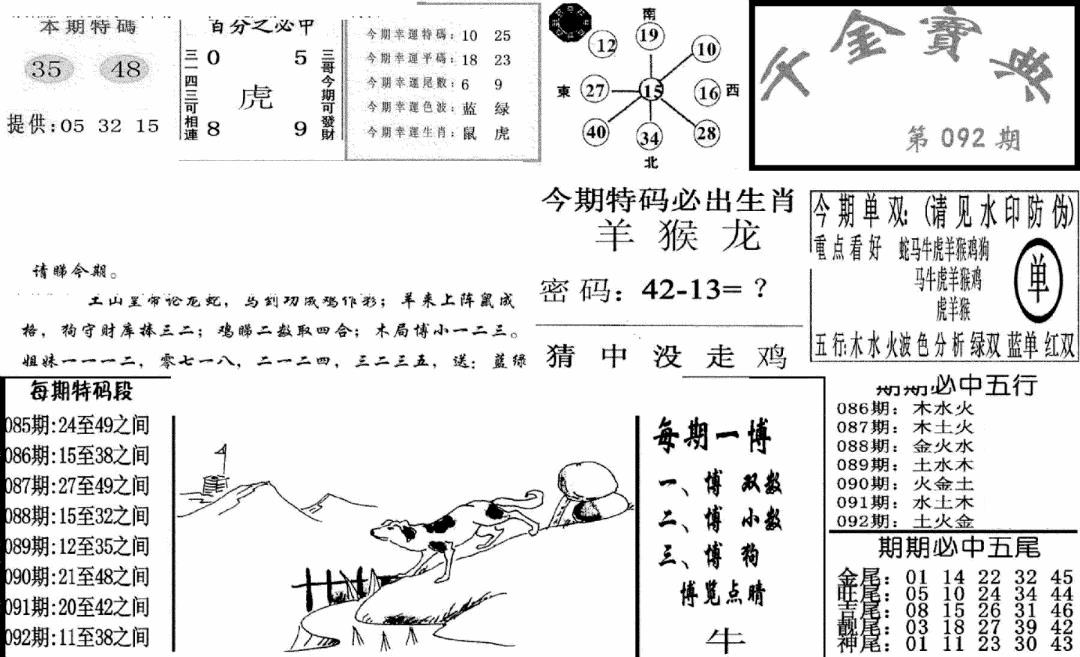 本期特碼
35 48
提供:05 32 15
百分之必中
三一四三可相連
0 5
虎
8 9
三哥今期可發財
今期幸運特碼: 10 25
今期幸運平碼: 18 23
今期幸運尾數: 6 9
今期幸運色波: 蓝 绿
今期幸運生肖: 鼠 虎
南
12 19 10
東 27 15 16 西
40 34 28
北
金寶典
第092期
请睇今期。
格,狗守财库捧三二;鸡睇二数取四合;木局博小一二三。
姐妹一一一二,零七一八,二一二四,三二三五,送:蓝绿
今期特码必出生肖
羊 猴 龙
密码:42-13=?
猜 中 没 走 鸡
今期单双:(请见水印防伪)
重点看好 蛇马牛虎羊猴鸡狗
马牛虎羊猴鸡
虎羊猴
单
五行:木水火波色分析绿双 蓝单 红双
每期特码段
085期:24至49之间
086期:15至38之间
087期:27至49之间
088期:15至32之间
089期:12至35之间
090期:21至48之间
091期:20至42之间
092期:11至38之间
每期一博
一、博 双数
二、博 小数
三、博 狗
博览点睛
牛
期期必中五行
086期:木水火
087期:木土火
088期:金火水
089期:土水木
090期:火金土
091期:水土木
092期:土火金
期期必中五尾
金尾:01 14 22 32 45
旺尾:05 10 24 34 44
吉尾:08 15 26 31 46
靓尾:03 18 27 39 42
神尾:01 11 23 30 43